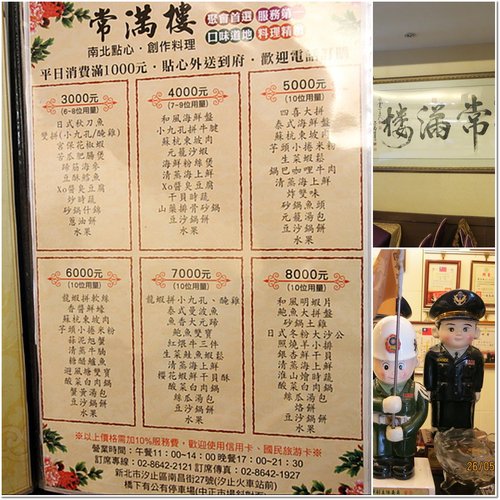 常滿樓
聚會首選 服務第一
口味道地 料理精緻
南北點心·創作料理
平日消費滿1000元,貼心外送到府,歡迎電話訂購
3000元
(6-8位用量)
日式秋刀魚
雙拼(小九孔/醃雞)
宮保花椒蝦
苦瓜肥腸煲
蹄筋海參
豆酥鱈魚
Xo醬臭豆腐
炒時蔬
砂鍋什錦
蔥油餅
水果
4000元
(7-9位用量)
和風海鮮盤
小九孔拼牛腱
蘇杭東坡肉
元籠沙蝦
海鮮粉絲煲
清蒸海上鮮
Xo醬臭豆腐
干貝時蔬
山藥排骨砂鍋
豆沙鍋餅
水果
5000元
(10位用量)
四喜大拼
泰式海鮮盤
蘇杭東坡肉
芋頭小捲米粉
生菜蝦鬆
鍋巴咖哩牛肉
清蒸海上鮮
炸雙味
砂鍋魚頭
元籠湯包
豆沙鍋餅
水果
6000元
(10位用量)
龍蝦拼軟絲
香醬鮮蠔
蘇杭東坡肉
芋頭小捲米粉
蒜泥旭蟹
清蒸牛腩
糖醋鱸魚
避風糖雙寶
酸菜白肉鍋
蟹黃湯包
豆沙鍋餅
水果
7000元
(10位用量)
龍蝦拼小九孔、醃雞
泰式曼波魚
魚香大元蹄
鮑魚雙寶
紅燜牛三件
生菜鮭魚蝦鬆
清蒸海上鮮
櫻花蝦鮮干貝酥
酸菜白肉鍋
絲瓜湯包
豆沙鍋餅
水果
8000元
(10位用量)
和風明蝦片
鮑魚大拼盤
砂鍋土雞
日式冬粉大沙公
照燒羊小排
銀杏鮮干貝
清蒸海上鮮
淮山燴時蔬
酸菜白肉鍋
絲瓜湯包
烙餅
豆沙鍋餅
水果
※以上價格需加10%服務費,歡迎使用信用卡、國民旅遊卡※
營業時間:午餐11:00~14:00 晚餐17:00~21:30
訂席專線:02-8642-2121 訂席傳真:02-8642-1927
新北市汐止區南昌街27號(汐止火車站前)
橋下有公有停車場(中正市場斜對面)
常滿樓
26/05